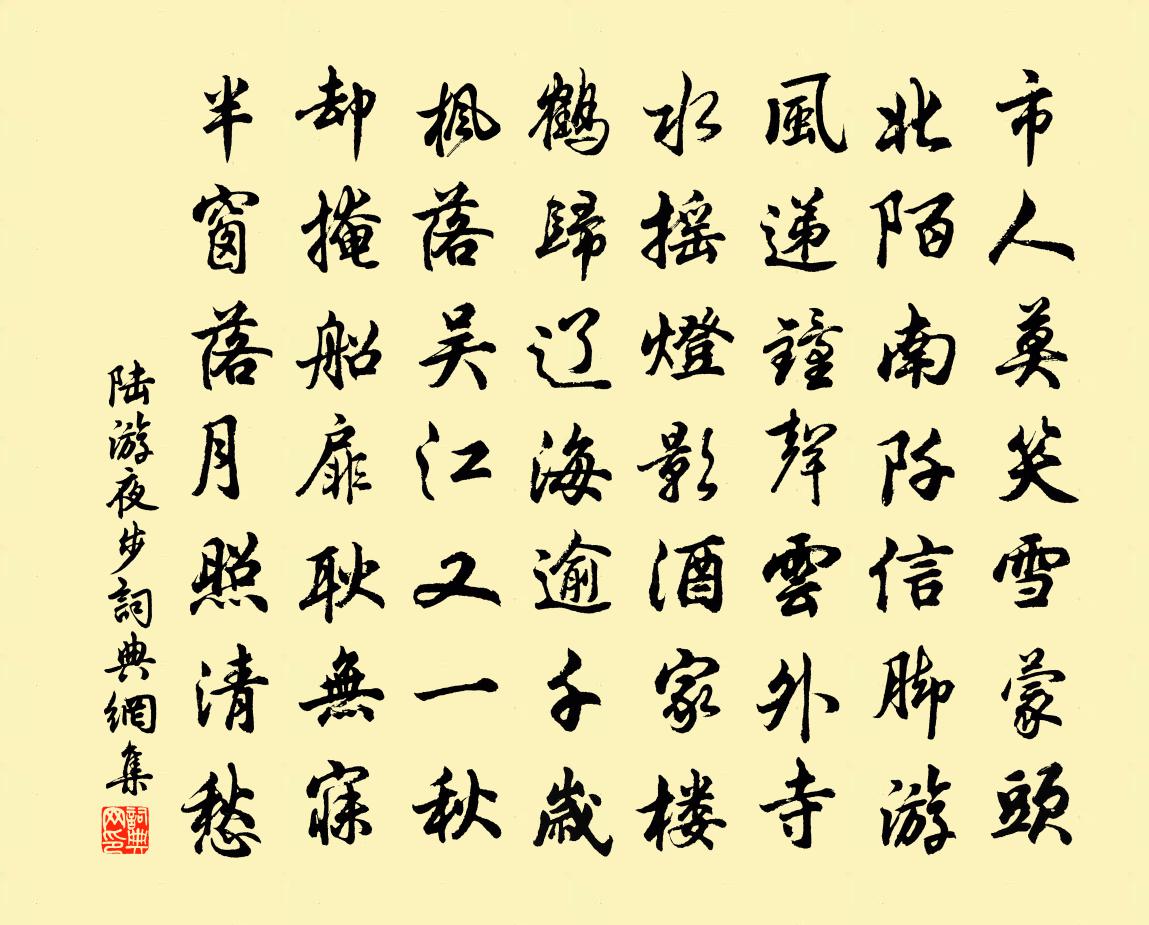 市人莫笑雪蒙頭
北陌南阡信脚游
風递鐘聲雲外寺
水摇燈影酒家楼
鶴歸辽海逾千歲
枫落吴江又一秋
却掩船扉耿無寐
半窗落月照清愁
陆游夜步詞典網集
詞典网印